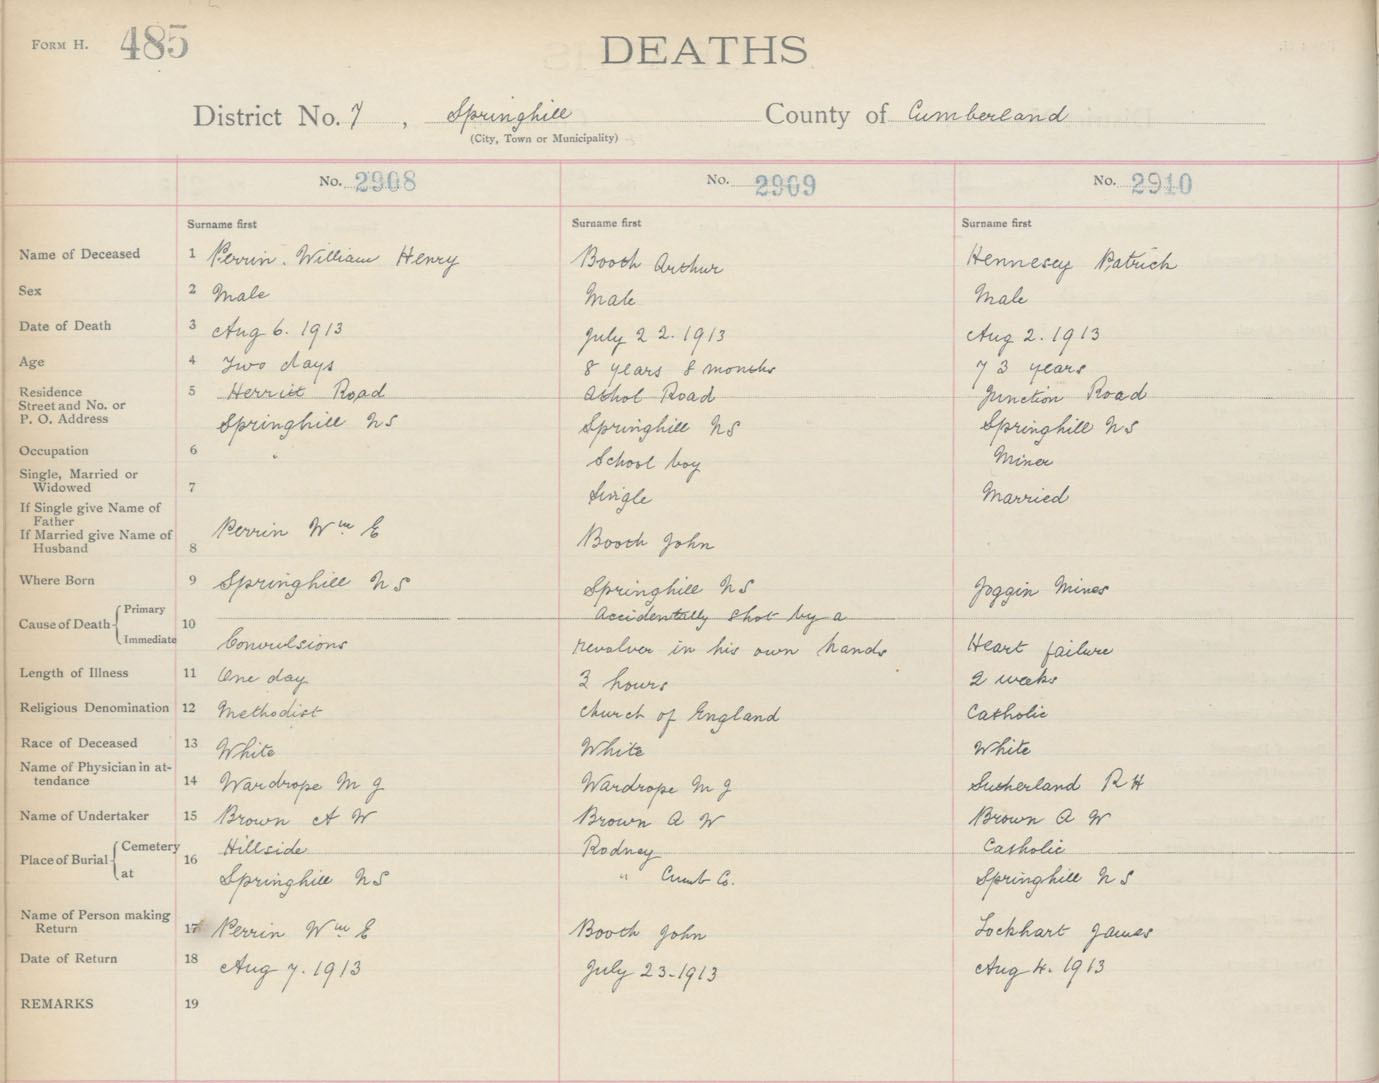 FORM H. 485
DEATHS
District No. 7, Springhill County of Cumberland
(City, Town or Municipality)
No. 2908 No. 2909 No. 2910
Surname first Surname first Surname first
Name of Deceased 1 Perrin. William Henry Booth Arthur Hennesey Patrick
Sex 2 Male Male Male
Date of Death 3 Aug 6. 1913 July 22. 1913 Aug 2. 1913
Age 4 Two days 8 years 8 months 73 years
Residence 5 Herriet Road Athol Road Junction Road
Street and No. or
P. O. Address Springhill NS Springhill NS Springhill NS
Occupation 6 School boy Miner
Single, Married or
Widowed 7 Single Married
If Single give Name of
Father
If Married give Name of
Husband 8 Perrin Wm E Booth John
Where Born 9 Springhill NS Springhill NS Joggin Mines
Cause of Death 10 Primary Accidentally shot by a
Immediate Convulsions revolver in his own hands Heart failure
Length of Illness 11 One day 3 hours 2 weeks
Religious Denomination 12 Methodist Church of England Catholic
Race of Deceased 13 White White White
Name of Physician in at-
tendance 14 Wardrope M J Wardrope M J Sutherland R H
Name of Undertaker 15 Brown A W Brown A W Brown A W
Place of Burial 16 Cemetery Hillside Rodney Catholic
at Springhill NS " Cumb Co. Springhill NS
Name of Person making
Return 17 Perrin Wm E Booth John Lockhart James
Date of Return 18 Aug 7. 1913 July 23-1913 Aug 4. 1913
REMARKS 19